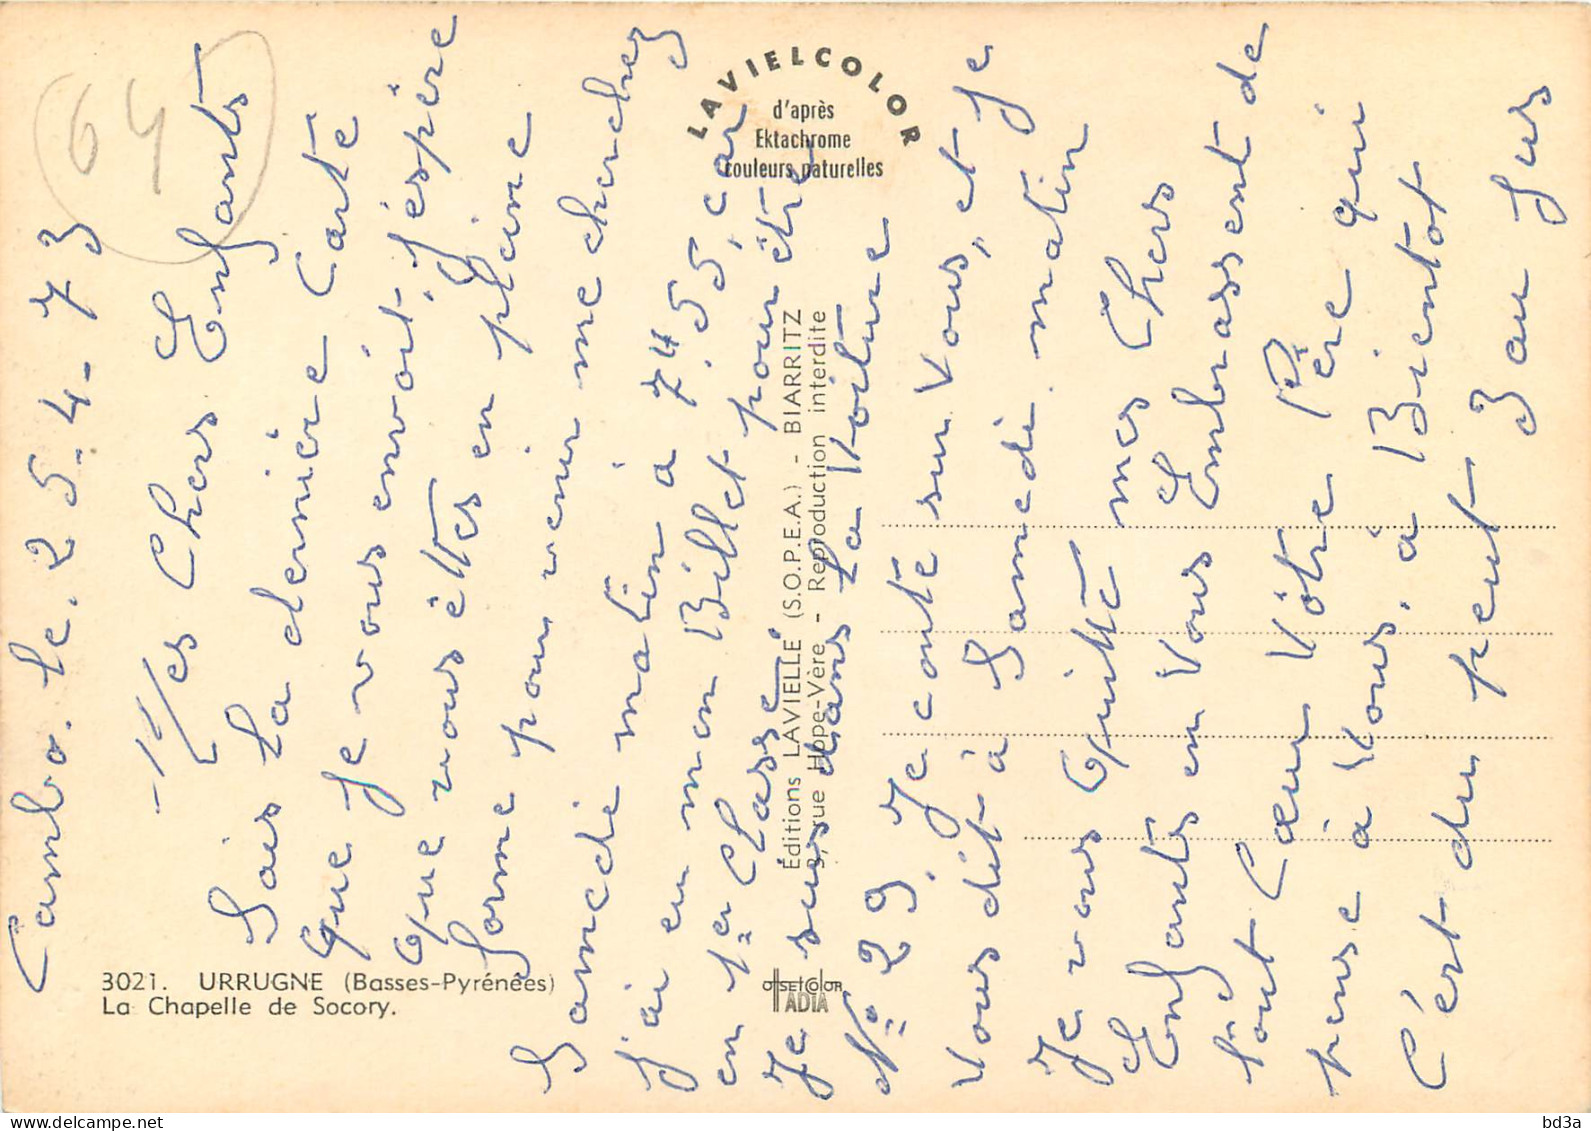 64
Cambo. le. 25-4-73
Mes Chers Enfants
Sais la dernière Carte
Que Je vous envoit. J'éspère
Que vous êttes en pleine
Forme pour venir me cherchez
Samedi matin à 7H 55, car
J'ai eu mon Billet pour être
en 1er Classe.
Je suis dans la Voiture
No 29, Je conte sur Vous, et Je
Vous dit à Samedi matin
Je vous Quitte mes Chers
Enfants en Vous Embrassent de
tout Cœur Vôtre Père qui
pense à Vous, à Bientot
C'ést du peut Bau Jus
LAVIELCOLOR
d'après
Ektachrome
couleurs naturelles
Éditions LAVIELLE (S.O.P.E.A.) - BIARRITZ
3, rue Hope-Vère - Reproduction interdite
OFFSETCOLOR
ADIA
3021. URRUGNE (Basses-Pyrénêes)
La Chapelle de Socory.
bd3a